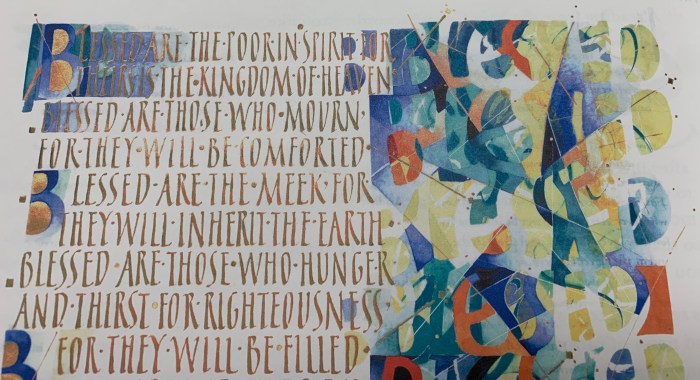 BLESSED·ARE·THE·POOR·IN·SPIRIT·FOR
THEIRS·IS·THE·KINGDOM·OF·HEAVEN
BLESSED·ARE·THOSE·WHO·MOURN·
FOR·THEY·WILL·BE·COMFORTED·
BLESSED·ARE·THE·MEEK·FOR
THEY·WILL·INHERIT·THE·EARTH
BLESSED·ARE·THOSE·WHO·HUNGER
AND·THIRST·FOR·RIGHTEOUSNESS·
FOR·THEY·WILL·BE·FILLED·